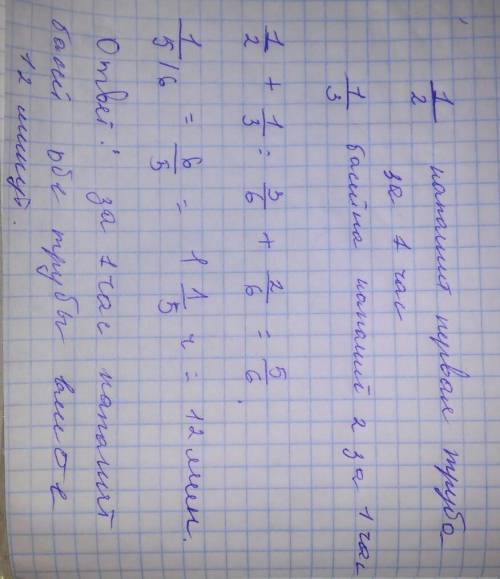 1/2 напалнит первая труба
за 1 час
1/3 басейна напалнит 2 за 1 час
1/2 + 1/3 = 3/6 + 2/6 = 5/6.
1/5/6 = 6/5 = 1 1/5 ч = 12 мин.
Ответ: за 1 час напалнят
басей обе трубы вместе
12 минут.